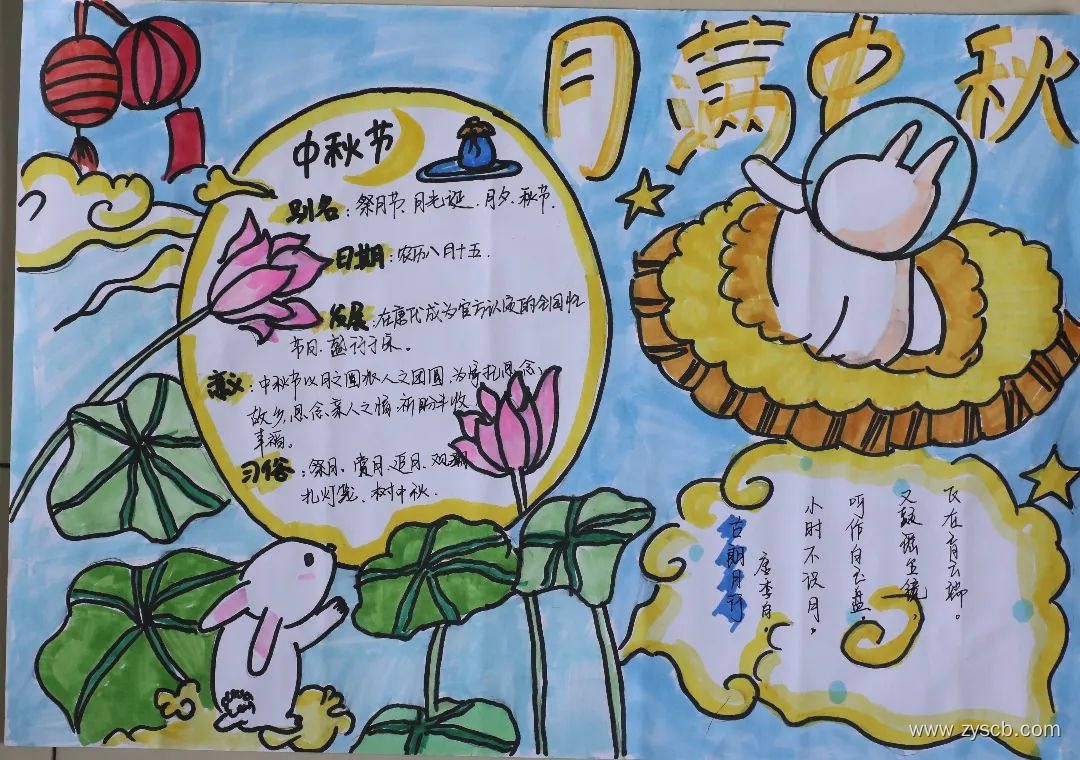 月满中秋
中秋节
别名：祭月节、月光诞、月夕、秋节.
日期：农历八月十五.
发展：在唐代成为官方认定的全国性
节日.盛行于宋。
意义：中秋节以月之圆兆人之团圆.为寄托思念
故乡,思念亲人之情.祈盼丰收
幸福。
习俗：祭月、赏月、追月、观潮
扎灯笼、树中秋.
古朗月行
唐李白.
小时不识月,
呼作白玉盘.
又疑瑶台镜,
飞在青云端。
www.zyscb.com